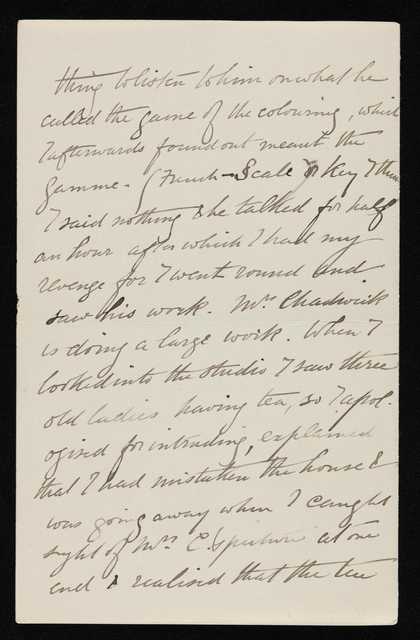 thing to listen to him on what he
called the game of the colouring, which
I afterwards found out meant the
gamme. (French - Scale or Key I think
I said nothing & he talked for half
an hour after which I had my
revenge for I went round and
saw his work. Mrs. Chadwick
is doing a large work. When I
looked into the studio I saw three
old ladies having tea, so I apol-
ogised for intruding, explained
that I had mistaken the house &
was going away when I caught
sight of Mrs C. at one
end & realised that the tea